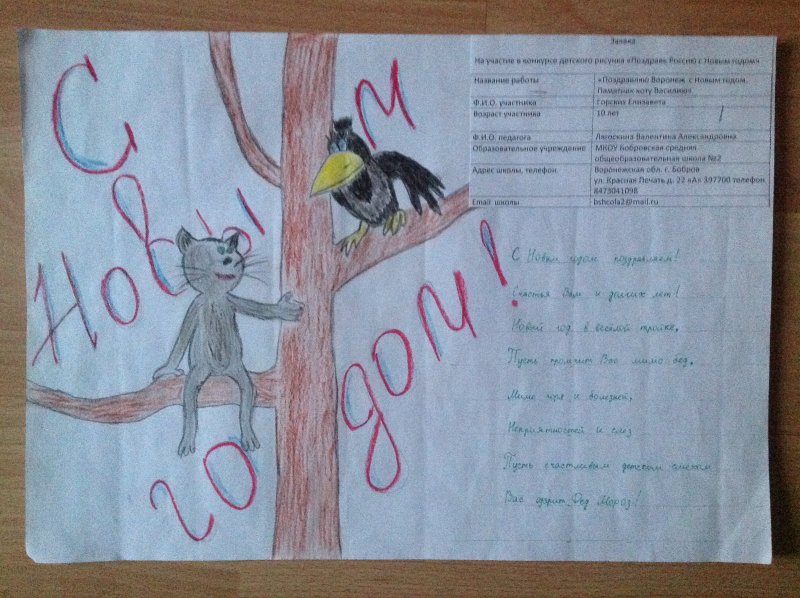 С Новым
годом!
Заявка
На участие в конкурсе детского рисунка «Поздравь Россию с Новым годом»
Название работы «Поздравляю Воронеж с Новым годом.
Памятник коту Василию»
Ф.И.О. участника Горских Елизавета
Возраст участника 10 лет
Ф.И.О. педагога Лягоскина Валентина Александровна
Образовательное учреждение МКОУ Бобровская средняя
общеобразовательная школа №2
Адрес школы, телефон. Воронежская обл. г. Бобров
ул. Красная Печать д. 22 «А» 397700 телефон
8473041098
Email школы bshcola2@mail.ru
С Новым годом поздравляем!
Счастья Вам и долгих лет!
Новый год в весёлой тройке,
Пусть промчит Вас мимо бед,
Мимо горя и болезней,
Неприятностей и слез
Пусть счастливым детским смехом
Вас одарит Дед Мороз!